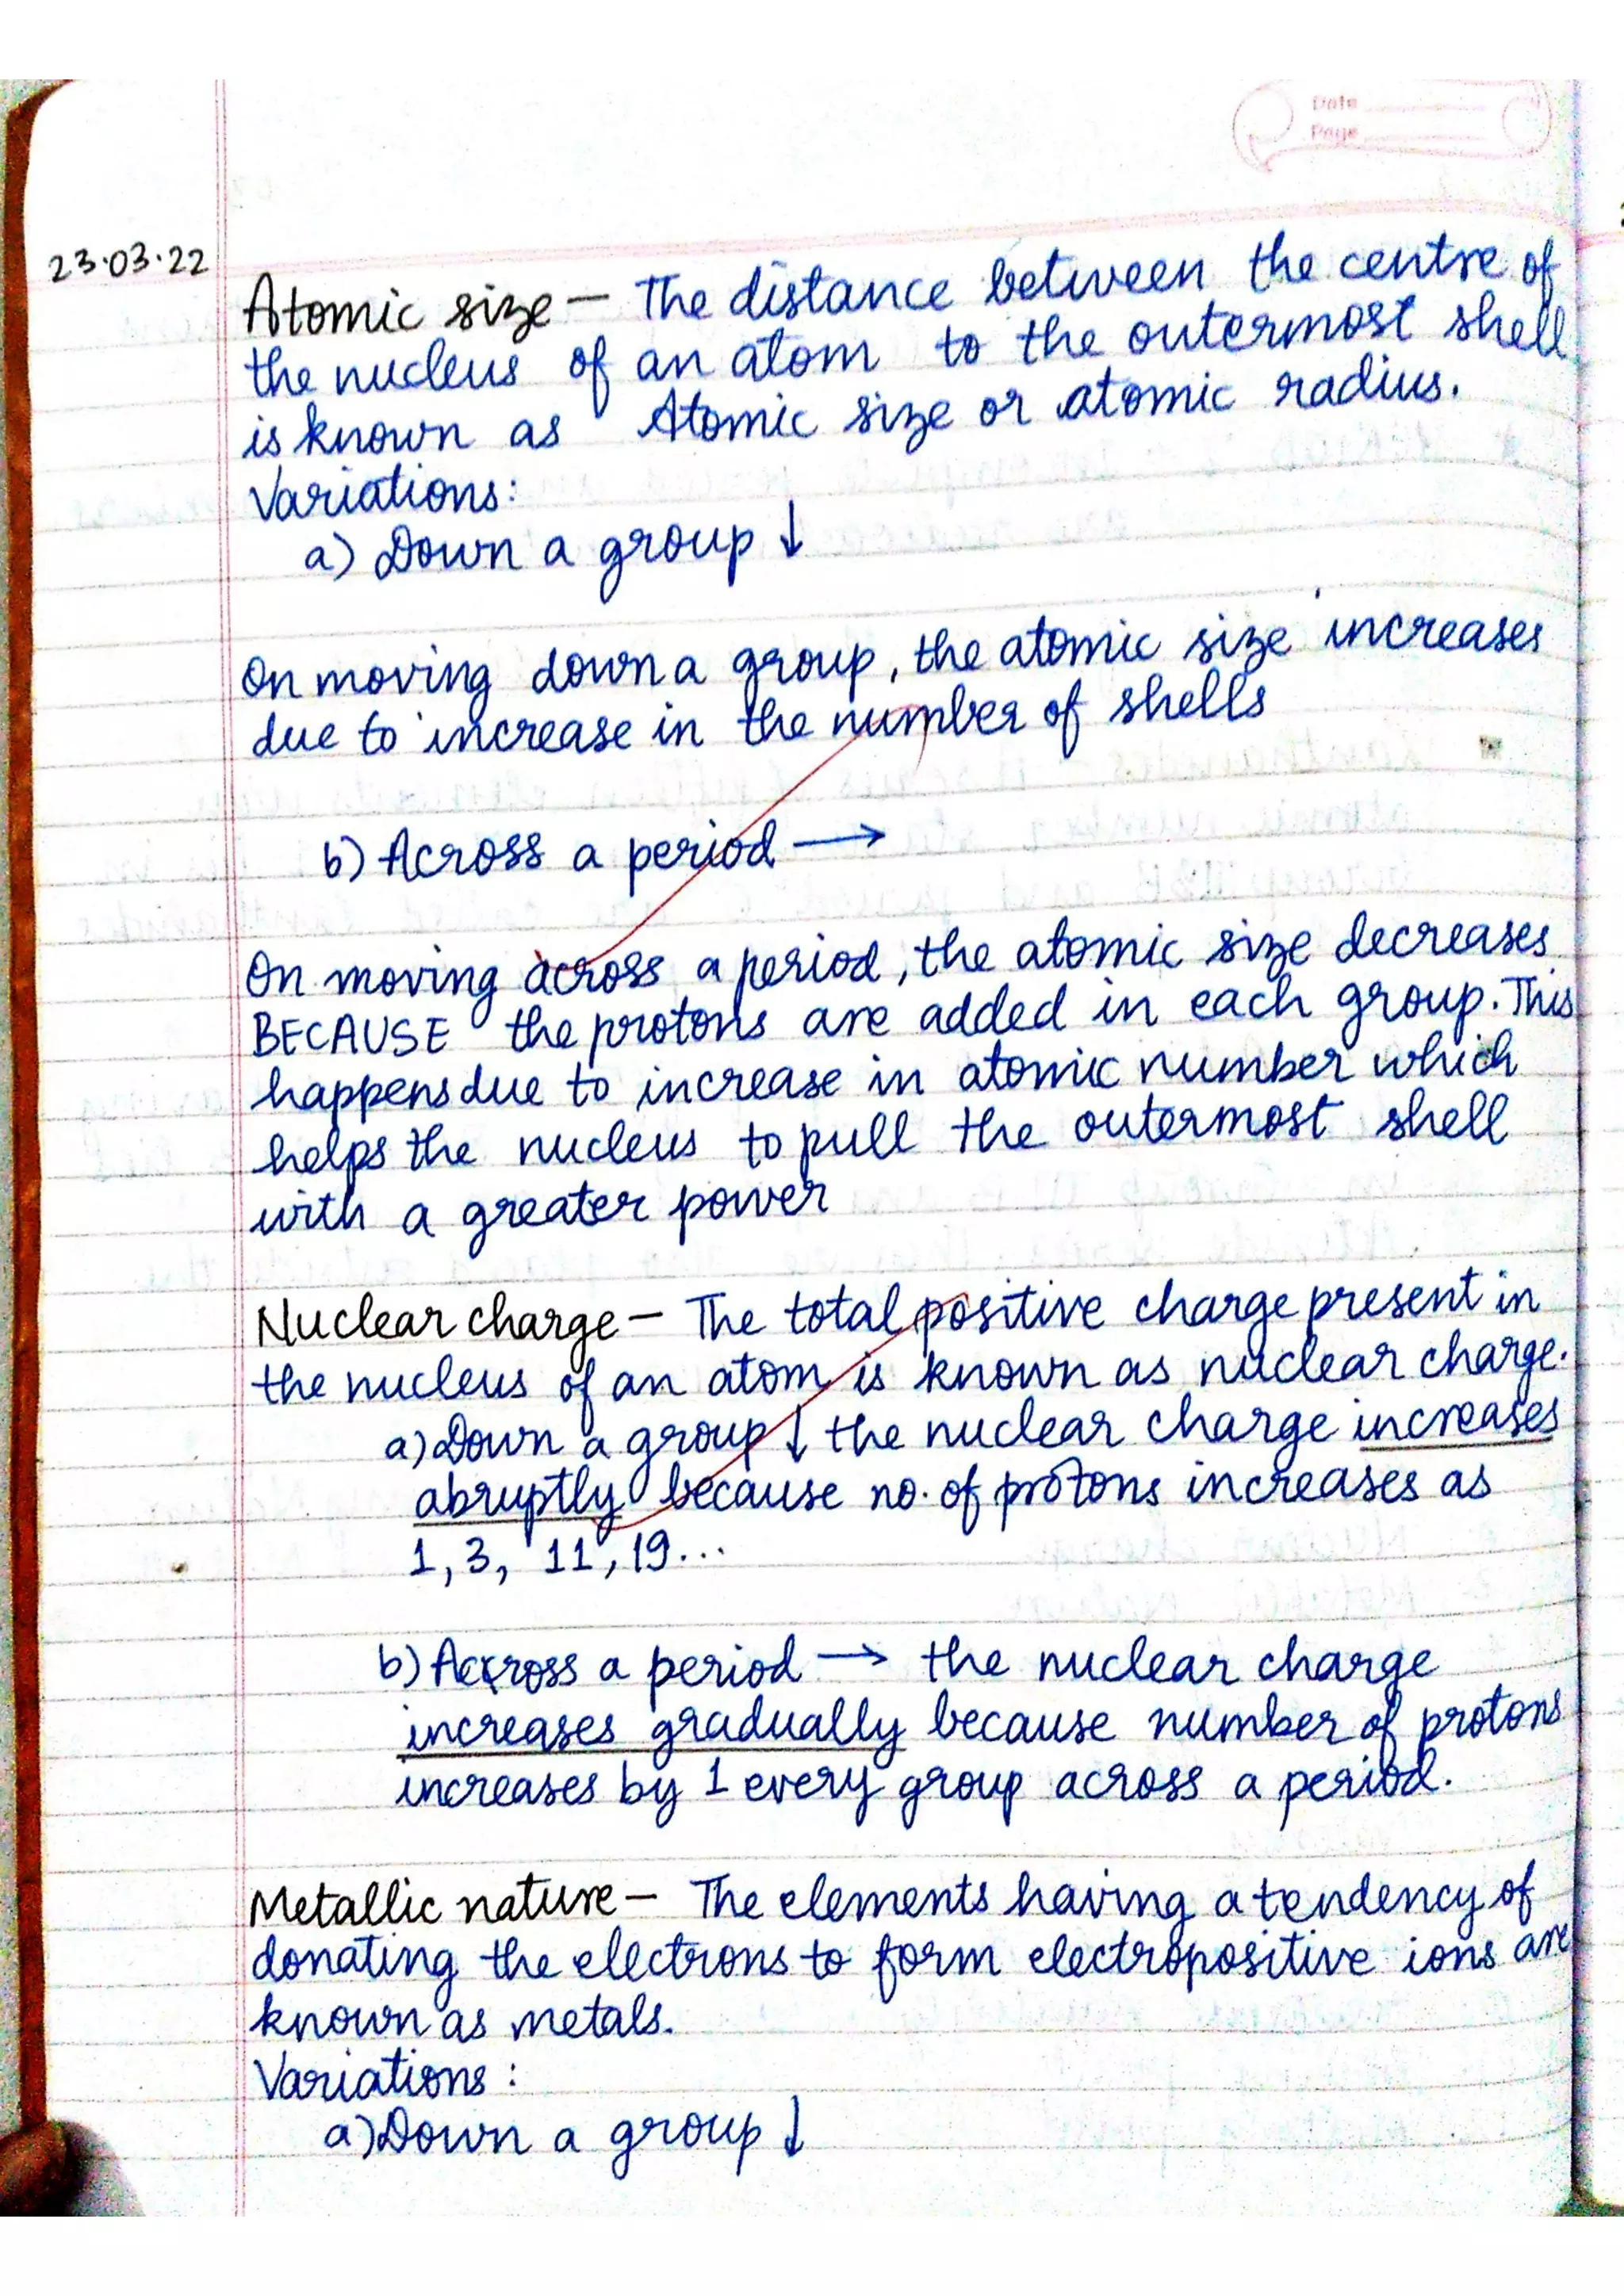 Date
Page
23.03.22
Atomic size — The distance between the centre of
the nucleus of an atom to the outermost shell
is known as Atomic size or atomic radius.
Variations:
a) Down a group ↓
On moving down a group, the atomic size increases
due to increase in the number of shells
b) Across a period →
On moving across a period, the atomic size decreases
BECAUSE the protons are added in each group. This
happens due to increase in atomic number which
helps the nucleus to pull the outermost shell
with a greater power
Nuclear charge — The total positive charge present in
the nucleus of an atom is known as nuclear charge.
a) Down a group ↓ the nuclear charge increases
abruptly because no. of protons increases as
1, 3, 11, 19...
b) Across a period → the nuclear charge
increases gradually because number of protons
increases by 1 every group across a period.
Metallic nature — The elements having a tendency of
donating the electrons to form electropositive ions are
known as metals.
Variations :
a) Down a group ↓